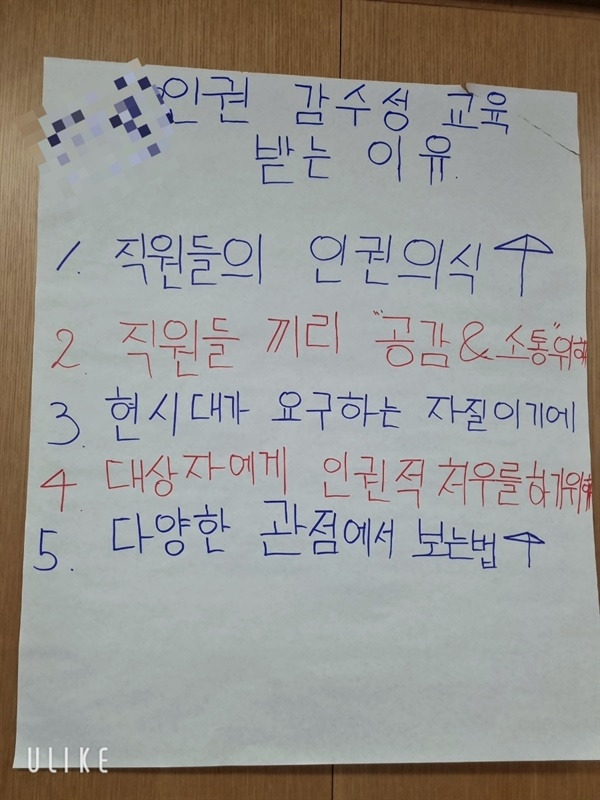 인권 감수성 교육
받는 이유
1. 직원들의 인권의식 ↑
2. 직원들 끼리 "공감 & 소통" 위해
3. 현시대가 요구하는 자질이기에
4 대상자에게 인권적 처우를 하기위해
5. 다양한 관점에서 보는법 ↑
ULIKE